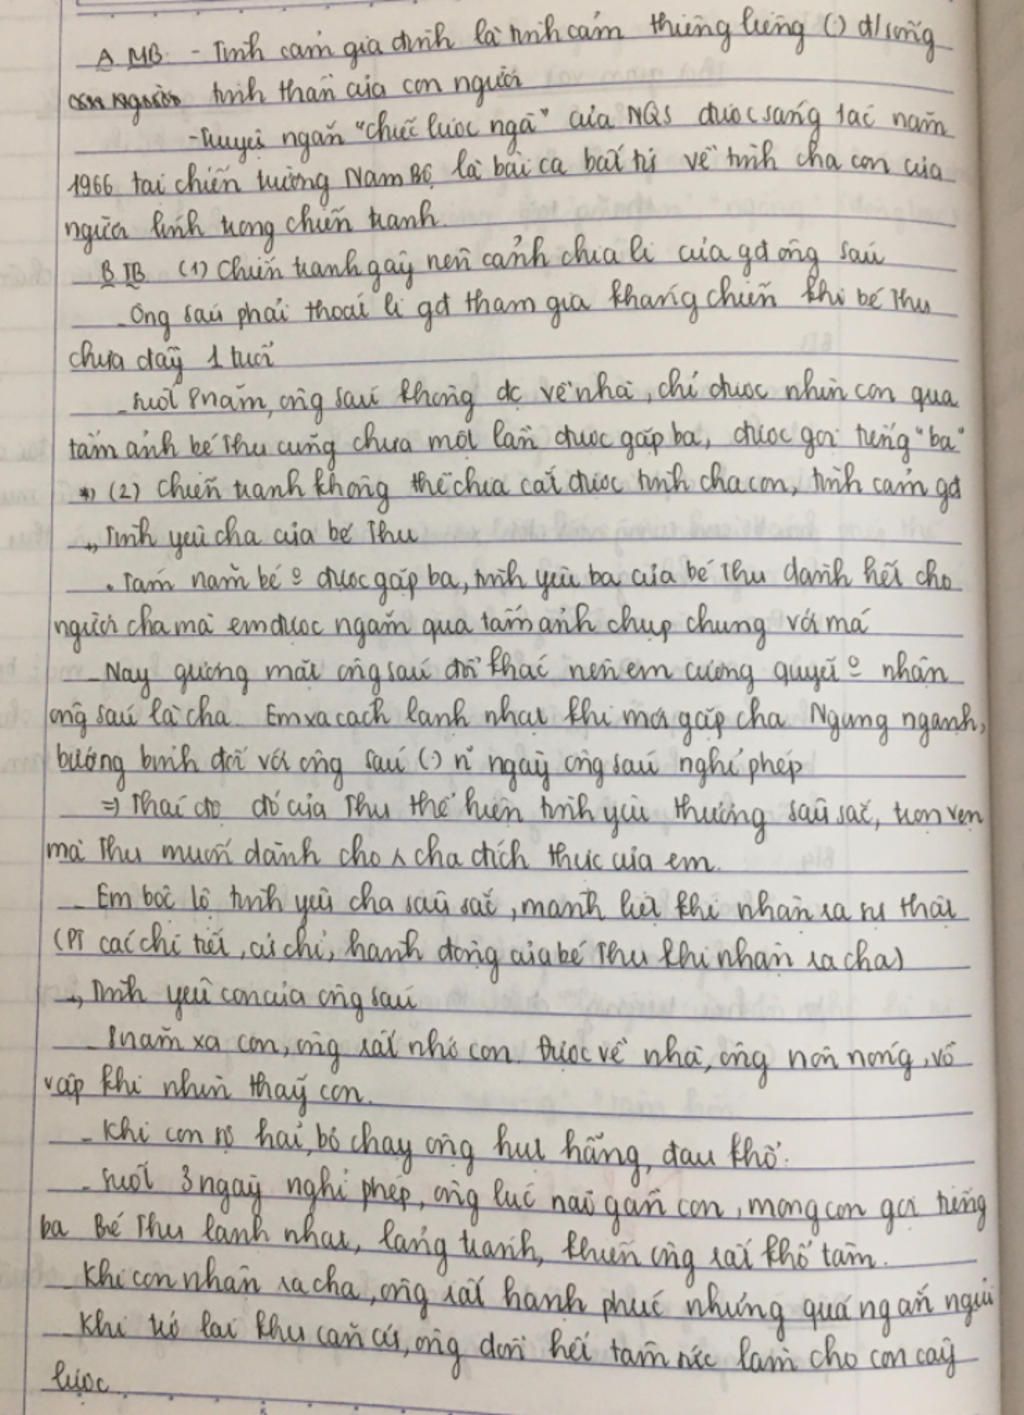 A MB. - Tình cảm gia đình là tình cảm thiêng liêng () đ/sống
tinh thần của con người
- Truyện ngắn "chiếc lược ngà" của NQS được sáng tác năm
1966 tại chiến trường Nam Bộ, là bài ca bất tử về tình cha con của
người lính trong chiến tranh.
B TB (1) Chiến tranh gây nên cảnh chia li của gđ ông Sáu
- Ông Sáu phải thoát li gđ tham gia kháng chiến khi bé Thu
chưa đầy 1 tuổi
- Suốt 8 năm, ông Sáu không đc về nhà, chỉ được nhìn con qua
tấm ảnh bé Thu cũng chưa một lần được gặp ba, được gọi tiếng "ba"
* (2) Chiến tranh không thể chia cắt được tình cha con, tình cảm gđ
→ Tình yêu cha của bé Thu
. Tám năm bé o được gặp ba, tình yêu ba của bé Thu dành hết cho
người cha mà em được ngắm qua tấm ảnh chụp chung với má
- Nay gương mặt ông Sáu đổi khác nên em cương quyết o nhận
ông Sáu là cha. Em xa cách lạnh nhạt khi mới gặp cha Ngang ngạnh,
bướng bỉnh đối với ông Sáu () n ngày ông Sáu nghỉ phép
⇒ Thái độ đó của Thu thể hiện tình yêu thương sâu sắc, trọn vẹn
mà Thu muốn dành cho ʌ cha đích thực của em.
- Em bộc lộ tình yêu cha sâu sắc, mãnh liệt khi nhận ra sự thật
(PT các chi tiết, cử chỉ, hành động của bé Thu khi nhận ra cha)
→ Tình yêu con của ông Sáu
- 8 năm xa con, ông rất nhớ con. Được về nhà, ông nôn nóng, vồ
vập khi nhìn thấy con.
- Khi con sợ hãi, bỏ chạy ông hụt hẫng, đau khổ.
- Suốt 3 ngày nghỉ phép, ông lúc nào gần con, mong con gọi tiếng
ba Bé Thu lạnh nhạt, lảng tránh, khiến ông rất khổ tâm.
- Khi con nhận ra cha, ông rất hạnh phúc nhưng quá ngắn ngủi
- Khi trở lại khu căn cứ, ông dồn hết tâm sức làm cho con cây
lược